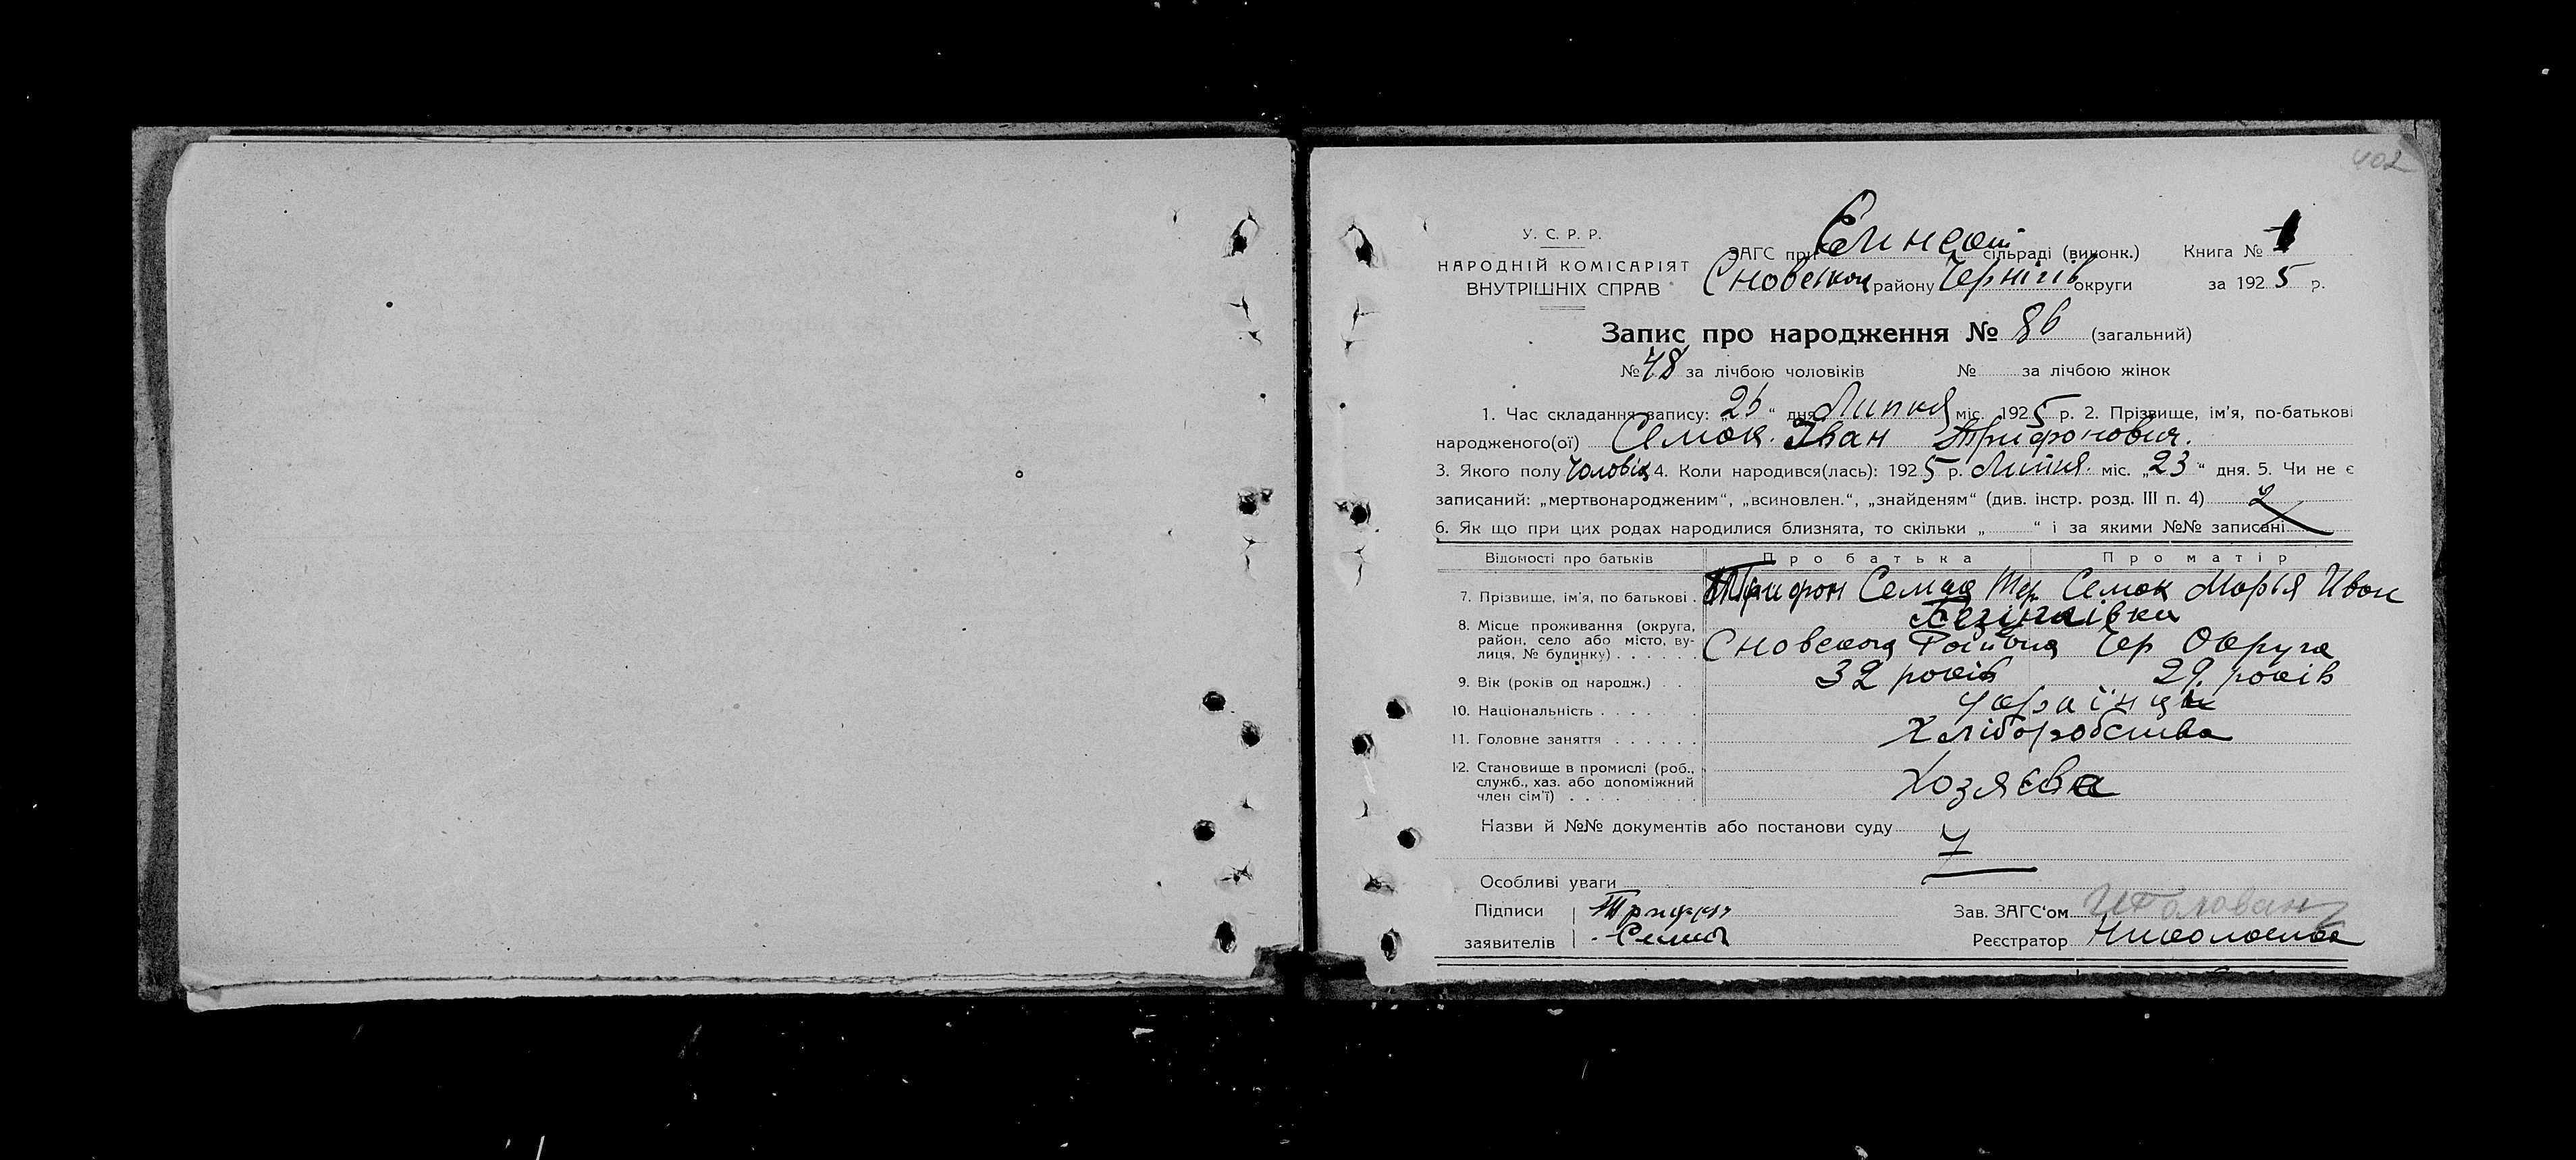 402
У. С. Р. Р.
НАРОДНІЙ КОМІСАРІЯТ
ВНУТРІШНІХ СПРАВ
ЗАГС при сільраді (виконк.) Книга № 1
Сновської району Чернігів округи за 1925 р.
Запис про народження № 86 (загальний)
№ 48 за лічбою чоловіків № за лічбою жінок
1. Час складання запису: „26“ дня Липня міс. 1925 р. 2. Прізвище, ім'я, по-батькові
народженого(ої) Семок Іван Трифонович.
3. Якого полу Чоловіч 4. Коли народився(лась): 1925 р. Липня міс. „23“ дня. 5. Чи не є
записаний: „мертвонародженим“, „всиновлен.“, „знайденям“ (див. інстр. розд. III п. 4)
6. Як що при цих родах народилися близнята, то скільки „ “ і за якими №№ записані
Відомості про батьків Про батька Про матір
7. Прізвище, ім'я, по батькові . Трифон Семок Тер Семок Марья Иван
8. Місце проживання (округа,
район, село або місто, ву-
лиця, № будинку) . . . . . . Сновского Району Чер Округа
9. Вік (років од народж.) . . 32 років 29. років
10. Національність . . . . . . Українці
11. Головне заняття . . . . . . Хліборобства
12. Становище в промислі (роб.,
служб., хаз. або допоміжний
член сім'ї) . . . . . . . . . Хозяєва
Назви й №№ документів або постанови суду
Особливі уваги
Підписи Трифон Зав. ЗАГС'ом
заявителів Семок Реєстратор